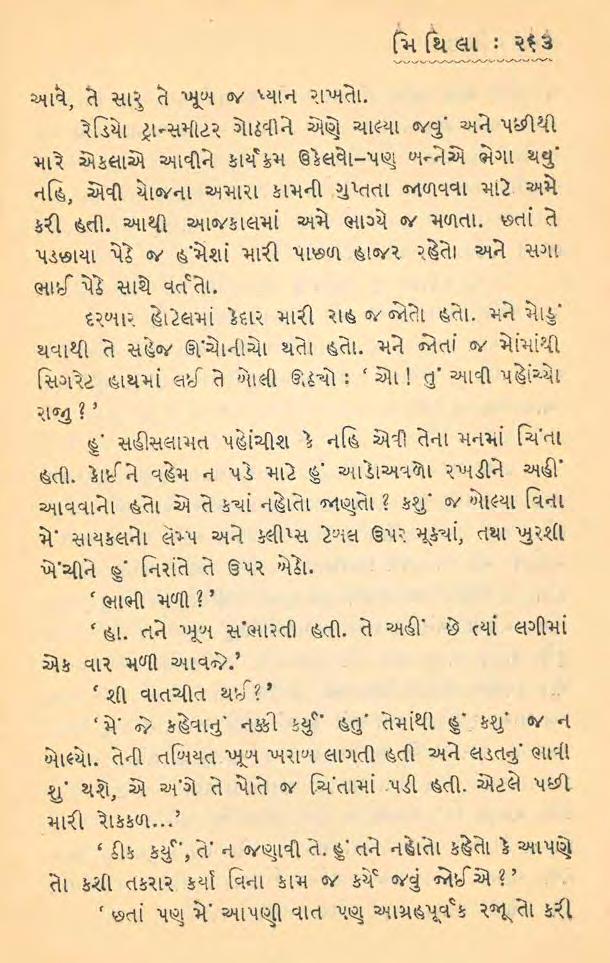 મિથિલા : ૨૬૩
આવે, તે સારુ તે ખૂબ જ ધ્યાન રાખતો.
રેડિયો ટ્રાન્સમીટર ગોઠવીને એણે ચાલ્યા જવું અને પછીથી
મારે એકલાએ આવીને કાર્યક્રમ ઉકેલવો–પણ બન્નેએ ભેગા થવું
નહિ, એવી યોજના અમારા કામની ગુપ્તતા જાળવવા માટે અમે
કરી હતી. આથી આજકાલમાં અમે ભાગ્યે જ મળતા. છતાં તે
પડછાયા પેઠે જ હંમેશાં મારી પાછળ હાજર રહેતો અને સગા
ભાઈ પેઠે સાથે વર્તતો.
દરબાર હોટેલમાં કેદાર મારી રાહ જ જોતો હતો. મને મોડું
થવાથી તે સહેજ ઊંચોનીચો થતો હતો. મને જોતાં જ મોંમાંથી
સિગરેટ હાથમાં લઈ તે બોલી ઊઠ્યો : ‘ ઓ ! તું આવી પહોંચ્યો
રાજી ? ’
હું સહીસલામત પહોંચીશ કે નહિ એવી તેના મનમાં ચિંતા
હતી. કોઈને વહેમ ન પડે માટે હું આડોઅવળો રખડીને અહીં
આવવાનો હતો એ તે ક્યાં નહોતો જાણતો ? કશું જ બોલ્યા વિના
મેં સાયકલનો લૅમ્પ અને ક્લીપ્સ ટેબલ ઉપર મૂક્યાં, તથા ખુરશી
ખેંચીને હું નિરાંતે તે ઉપર બેઠો.
‘ ભાભી મળી ? ’
‘ હા. તને ખૂબ સંભારતી હતી. તે અહીં છે ત્યાં લગીમાં
એક વાર મળી આવજે.’
‘ શી વાતચીત થઈ ? ’
‘ મેં જે કહેવાનું નક્કી કર્યું હતું તેમાંથી હું કશું જ ન
બોલ્યો. તેની તબિયત ખૂબ ખરાબ લાગતી હતી અને લડતનું ભાવી
શું થશે, એ અંગે તે પોતે જ ચિંતામાં પડી હતી. એટલે પછી
મારી રોકકળ...’
‘ ઠીક કર્યું, તેં ન જણાવી તે. હું તને નહોતો કહેતો કે આપણે
તો કશી તકરાર કર્યા વિના કામ જ કર્યે જવું જોઈએ ? ’
‘ છતાં પણ મેં આપણી વાત પણ આગ્રહપૂર્વક રજૂ તો કરી